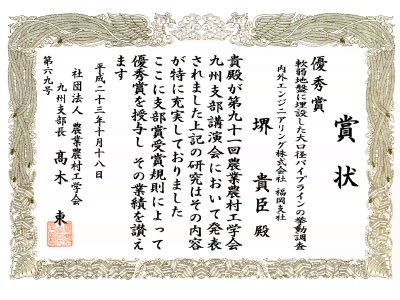 賞状
優秀賞
軟弱地盤に埋設した大口径パイプラインの挙動調査
内外エンジニアリング株式会社 福岡支社
堺 貴臣 殿
貴殿が第九十一回農業農村工学会
九州支部講演会において発表
されました上記の研究はその内容
が特に充実しておりました
ここに支部賞受賞規則によって
優秀賞を授与し その業績を讃え
ます
平成二十三年十月十八日
社団法人 農業農村工学会
九州支部長 髙木 東
第六九号